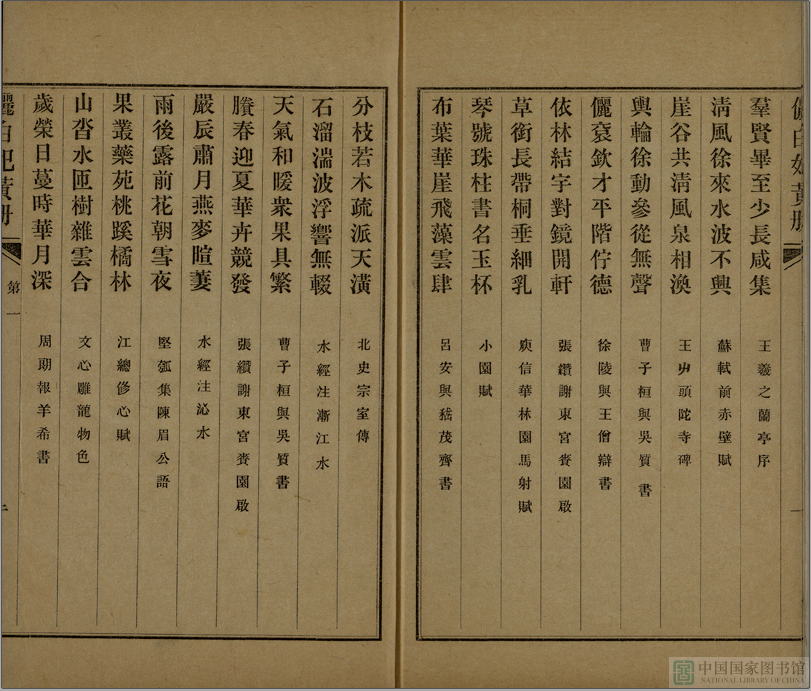 羣賢畢至少長咸集 王羲之蘭亭序
淸風徐來水波不興 蘇軾前赤壁賦
崖谷共淸風泉相渙 王屮頭陀寺碑
輿輪徐動參從無聲 曹子桓與吳質書
儷袞欽才平階佇德 徐陵與王僧辯書
依林結宇對鏡開軒 張纘謝東宮賚園啟
草銜長帶桐垂細乳 庾信華林園馬射賦
琴號珠柱書名玉杯 小園賦
布葉華崖飛藻雲肆 呂安與嵇茂齊書
分枝若木疏派天潢 北史宗室傳
石溜湍波浮響無輟 水經注漸江水
天氣和暖衆果具繁 曹子桓與吳質書
賸春迎夏華卉競發 張纘謝東宮賚園啟
嚴辰肅月燕麥暄萋 水經注沁水
雨後露前花朝雪夜 堅瓠集陳眉公語
果叢藥苑桃蹊橘林 江總修心賦
山沓水匝樹雜雲合 文心雕龍物色
歲榮日蔓時華月深 周朗報羊希書
黃册
第一
中国国家图书馆
NATIONAL LIBRARY OF CHINA